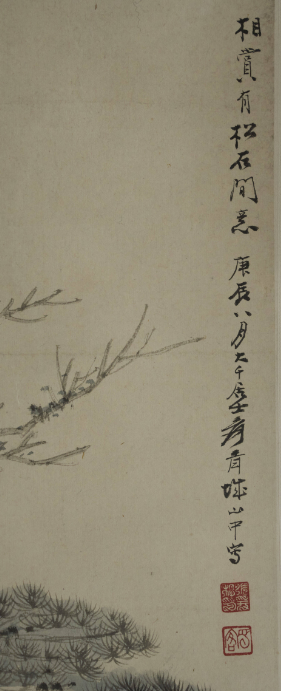 相賞有松石間意庚辰八月大千居士爰青城山中寫